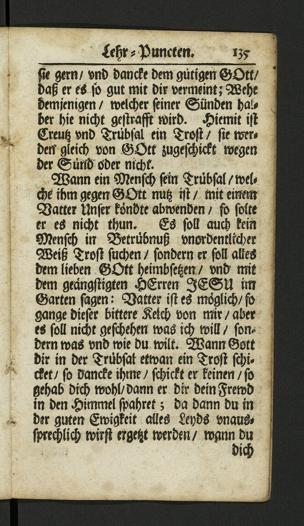 Lehr-Puncten. 135
sie gern/ vnd dancke dem gütigen GOtt/
daß er es so gut mit dir vermeint; Wehe
demjenigen/ welcher seiner Sünden hal-
ber hie nicht gestrafft wird. Hiemit ist
Creutz vnd Trübsal ein Trost/ sie wer-
den gleich von GOtt zugeschickt wegen
der Sünd oder nicht.
Wann ein Mensch sein Trübsal/ wel-
che ihm gegen GOtt nutz ist/ mit einem
Vatter Unser köndte abwenden/ so solte
er es nicht thun. Es soll auch kein
Mensch in Betrübnuß vnordentlicher
Weiß Trost suchen/ sondern er soll alles
dem lieben GOtt heimbsetzen/ vnd mit
dem geängstigten HErren JESU im
Garten sagen: Vatter ist es möglich/ so
gange dieser bittere Kelch von mir/ aber
es soll nicht geschehen was ich will/ son-
dern was vnd wie du wilt. Wann Gott
dir in der Trübsal etwan ein Trost schi-
cket/ so dancke ihme/ schickt er keinen/ so
gehab dich wohl/ dann er dir dein Frewd
in den Himmel spahret; da dann du in
der guten Ewigkeit alles Leyds vnaus-
sprechlich wirst ergetzt werden/ wann du
dich